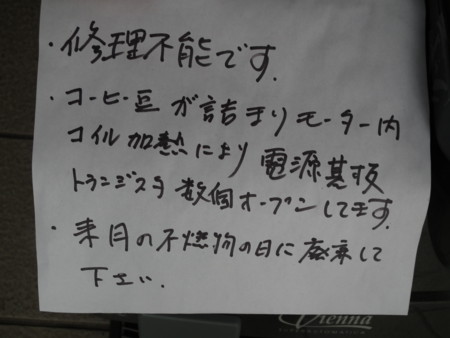 ・修理不能です.
・コーヒー豆が詰まりモーター内
コイル加熱により電源基板
トランジスタ数個オープンしてます.
・来月の不燃物の日に廃棄して
下さい.
Vienna